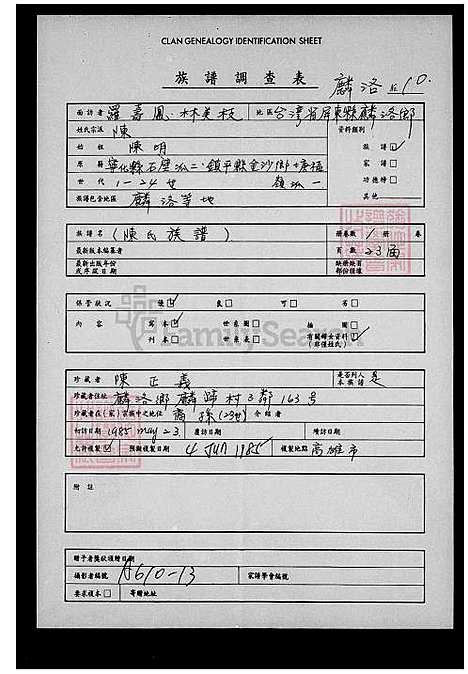 CLAN GENEALOGY IDENTIFICATION SHEET
族譜調查表 麟洛
面訪者 羅壽鳳·林美枝 地區 台灣省屏東縣麟洛鄉
姓氏宗派 陳 資料類別
始祖 陳明 族譜 ☑
原籍 寧化縣石壁 鎮平縣金沙鄉 家譜 □
世代 1-24世 功德榜 □
族譜包含地區 麟洛等地 其他
族譜名 (陳氏族譜) 冊卷數 1 冊 卷
最新版本編纂者 頁數 23面
最新出版年份或序跋日期 缺冊缺頁部份標壞
保管狀況 優 ☑ 良 □ 可 □ 劣 □
內容 寫本 ☑ 世系圖 □ 插圖 □ 有關婦女資料 ☑
刊本 □ 世系表 □ (非僅姓氏)
FamilySearch
珍藏者 陳正義 是否列入本族譜 是
珍藏者住址 麟洛鄉麟蹄村3鄰163号
珍藏者在(家)(宗)族中之地位 裔孫(23世) 介紹者
初訪日期 1985 May 23 複訪日期 續訪日期
允許複製 ☑ 預擬複製日期 4 JUN 1985 複製地點 高雄市
附註
贈予者獎狀頒贈日期
攝影者編號 A610-13 家譜學會編號
要求複本 □ 寄贈地址